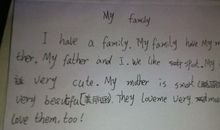 My family
I have a family. My family have My mo
ther. My father and I. We like spot. My
very cute. My mother is
very beautiful. They love me very
love them, too!